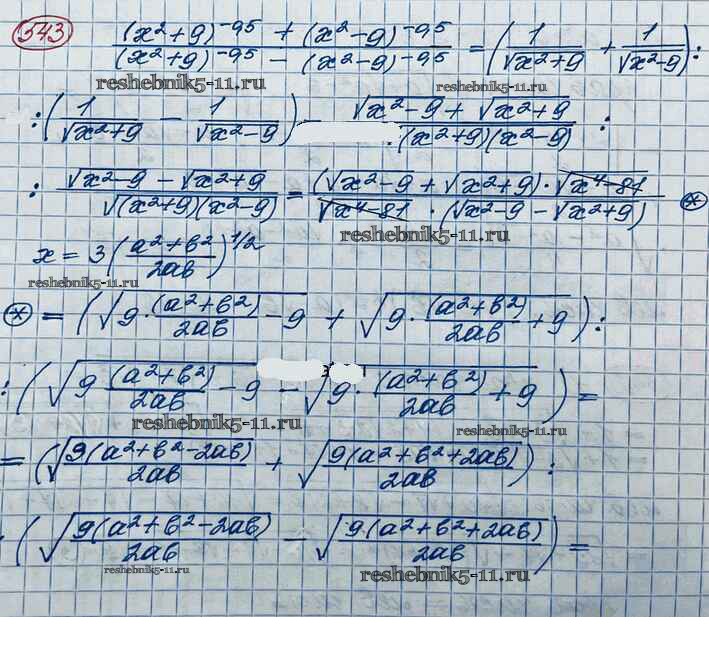 543 ((x²+9)^-0,5 + (x²-9)^-0,5)/((x²+9)^-0,5 - (x²-9)^-0,5) = (1/√(x²+9) + 1/√(x²-9)) :
reshebnik5-11.ru
: (1/√(x²+9) - 1/√(x²-9)) - (√(x²-9) + √(x²+9))/((x²+9)(x²-9)) :
: (√(x²-9) - √(x²+9))/√((x²+9)(x²-9)) = ((√(x²-9) + √(x²+9)) · √(x⁴-81))/(√(x⁴-81) · (√(x²-9) - √(x²+9))) *
reshebnik5-11.ru
x = 3((a²+b²)/2ab)^1/2
reshebnik5-11.ru
* = (√(9·(a²+b²)/2ab - 9) + √(9·(a²+b²)/2ab + 9)) :
: (√(9 (a²+b²)/2ab - 9) - √(9·(a²+b²)/2ab + 9)) =
reshebnik5-11.ru reshebnik5-11.ru
= (√(9(a²+b²-2ab)/2ab) + √(9(a²+b²+2ab)/2ab)) :
: (√(9(a²+b²-2ab)/2ab) - √(9·(a²+b²+2ab)/2ab)) =
reshebnik5-11.ru reshebnik5-11.ru